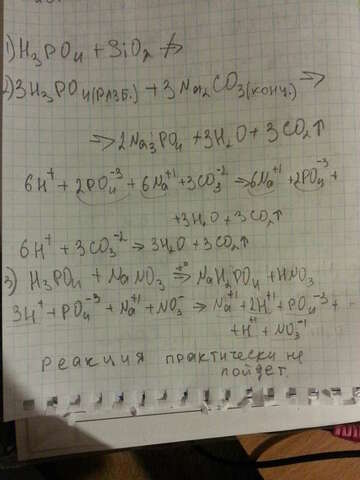 1) H₃PO₄ + SiO₂ ⇏
2) 3H₃PO₄(РАЗБ.) + 3Na₂CO₃(КОНЧ.) ⇒
⇒ 2Na₃PO₄ + 3H₂O + 3CO₂↑
6H⁺ + 2PO₄⁻³ + 6Na⁺¹ + 3CO₃⁻² → 6Na⁺¹ + 2PO₄⁻³ +
+ 3H₂O + 3CO₂↑
6H⁺ + 3CO₃⁻² → 3H₂O + 3CO₂↑
3) H₃PO₄ + NaNO₃ →(t°) NaH₂PO₄ + HNO₃
3H⁺ + PO₄⁻³ + Na⁺¹ + NO₃⁻ → Na⁺¹ + 2H⁺¹ + PO₄⁻³ +
+ H⁺¹ + NO₃⁻¹
реакция практически не
пойдет